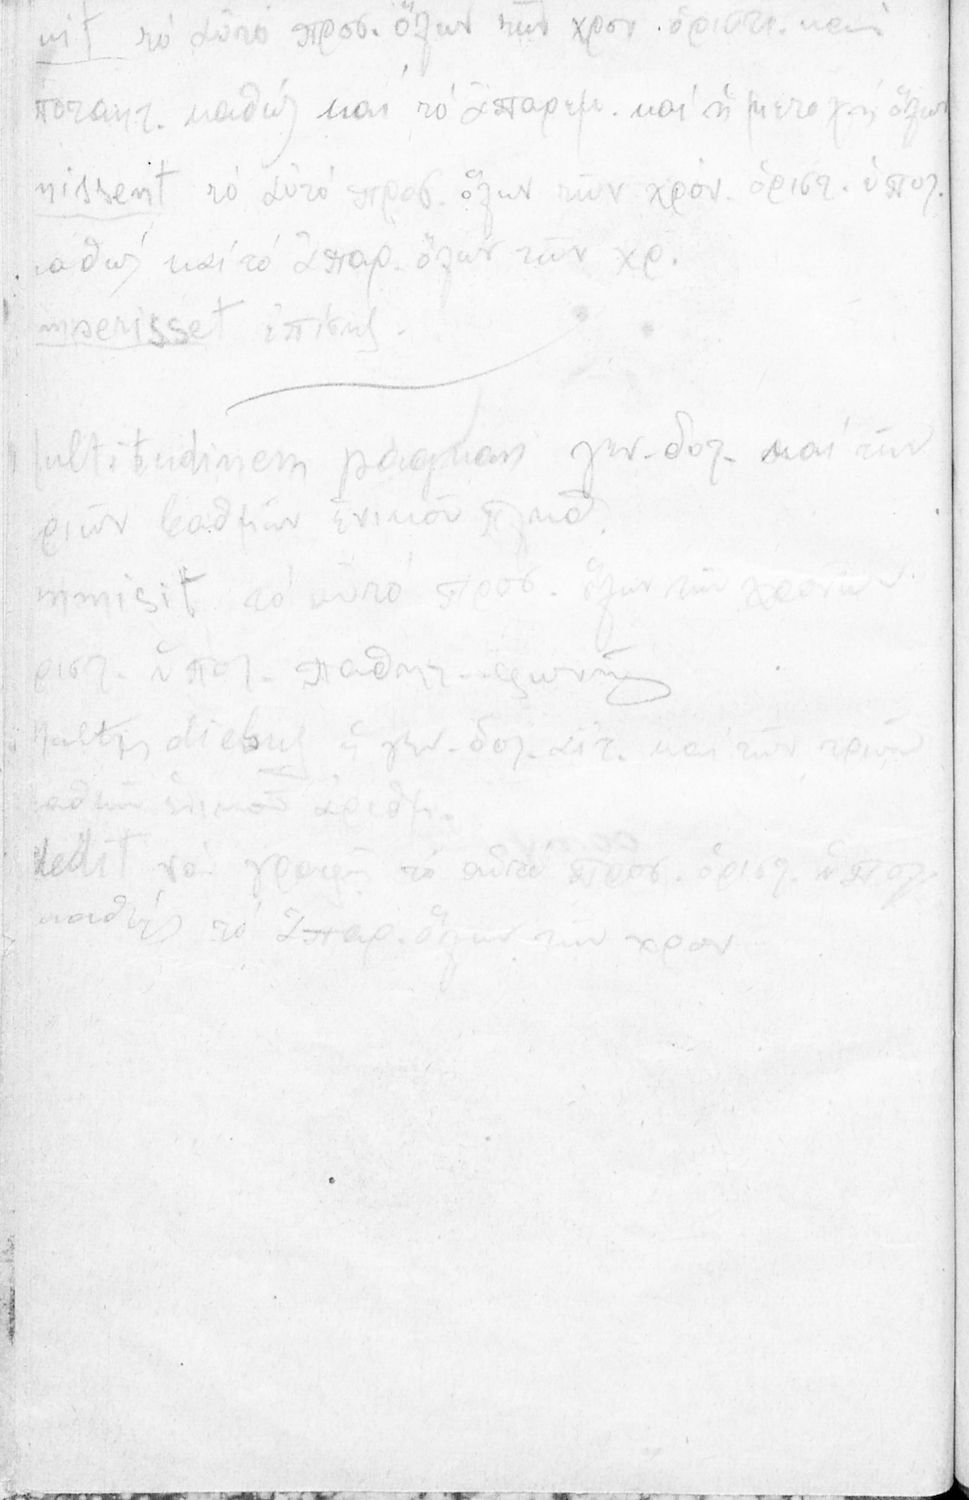 nit τό αὐτό προσ. ὅλων τῶν χρον. ὁριστι. καί
ποτακτ. καθώς καί τό ἀπαρεμ. καί ἡ μετοχή ὅλων
nissent τό αὐτό προσ. ὅλων τῶν χρόν. ὁριστ. ὑποτ.
αθώς καί τό ἀπαρ. ὅλων τῶν χρ.
mperisset ἐπίσης.
ultitudinem γεν. δοτ. καί τῶν
ριῶν βαθμῶν ἑνικοῦ
misit τό αὐτό προσ. ὅλων τῶν χρόνων
ριστ. ὑποτ. παθητ. φωνῆς
multis diebus ἡ γεν. δοτ. αἰτ. καί τῶν τριῶν
αθμῶν ἑνικοῦ ἀριθμ.
dedit νά γραφῇ τό αὐτό προσ. ὁριστ. ὑποτ.
καθώς τό ἀπαρ. ὅλων τῶν χρον